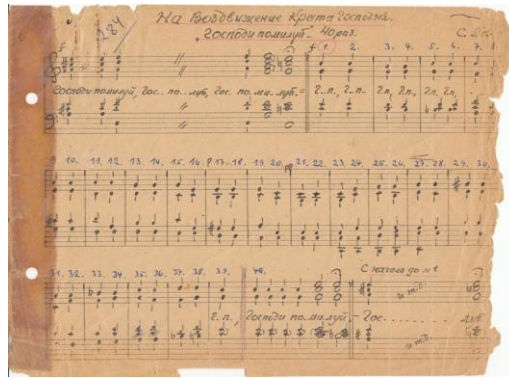 На Воздвижение Креста Господня.
284
Господи помилуй - 40 раз.
f f 1. 2. 3. 4. 5. 6. 7.
Господи помилуй, Гос.. по.. луй, Гос. по. ми. луй. = Г..п., Г..п.. Г.п, Г.п., Г.п, Г.п,
10. 11. 12. 13. 14. 15. 16. p 17. 18. 19. 20. pp 21. 22. 23. 24. 25. 26. 27. 28. 29. 30.
31. 32. 33. 34. 35. 36. 37. 38. 39. 40. С начала до
и т.п.
Г. п., Господи по. ми. луй, - Гос.
и т.п.